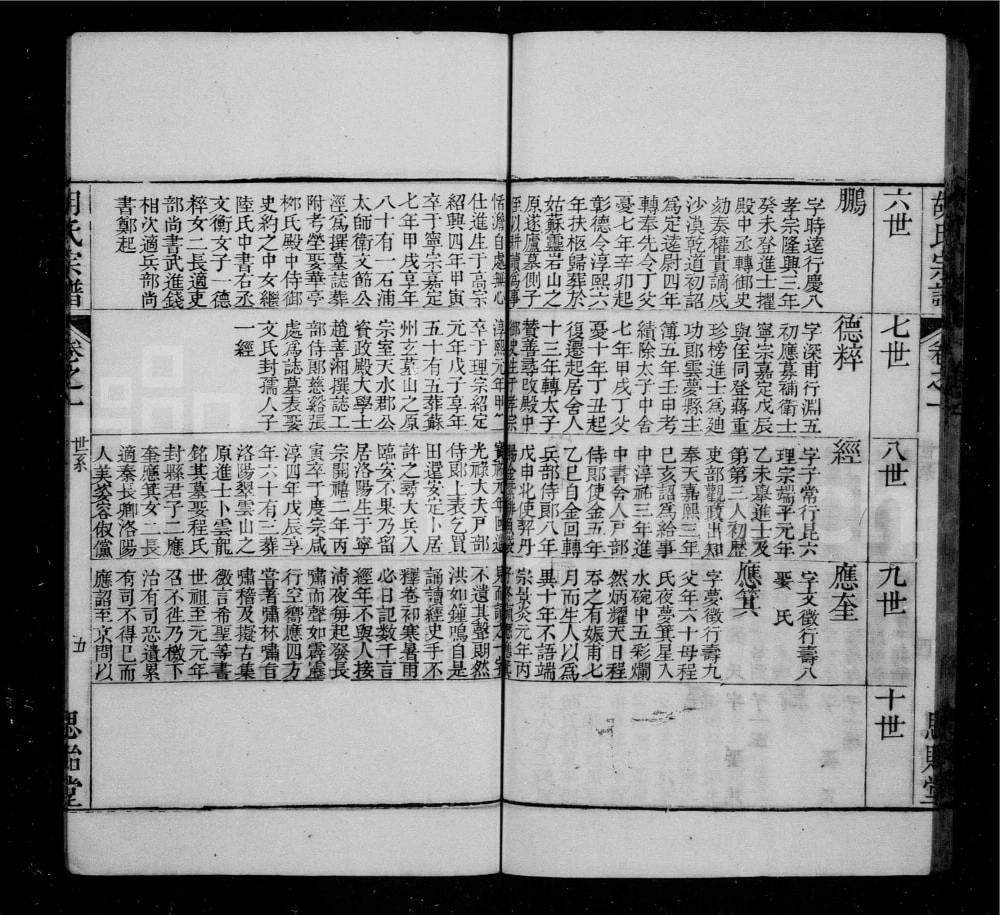 六世
鵬
字時逵行慶八
孝宗隆興三年
癸未登進士擢
殿中丞轉御史
劾奏權貴謫戍
沙漠乾道初詔
為定逵尉四年
轉奉先令丁父
憂七年辛卯起
彰德令淳熙六
年扶柩歸葬於
姑蘇靈岩山之
原遂廬墓側子
姪以耕讀為事
恬澹自處無心
仕進生于高宗
紹興四年甲寅
卒于寧宗嘉定
七年甲戌享年
八十有一石浦
太師衛文節公
涇為撰墓誌葬
附考塋娶華亭
柳氏殿中侍御
史約之中女繼
陸氏中書右丞
文衡女子一德
粹女二長適吏
部尚書武進錢
相次適兵部尚
書鄭起
七世
德粹
字深甫行淵五
初應募補衛士
寧宗嘉定戊辰
與侄同登蔣重
珍榜進士為廸
功郎雲夢縣主
簿五年壬申考
績除太子中舍
七年甲戌丁父
憂十年丁丑起
復遷起居舍人
十三年轉太子
賛善尋改殿中
御史生于孝宗
淳熙元年甲午
卒于理宗紹定
元年戊子享年
五十有五葬蘇
州玄墓山之原
宗室天水郡公
資政殿大學士
趙善湘撰誌工
部侍郎慈谿張
處為誌墓表娶
文氏封孺人子
一經
八世
經
字子常行昆六
理宗端平元年
乙未舉進士及
第第三人初歷
吏部觀政出知
奉天嘉熙三年
己亥詔為給事
中淳祐三年進
中書舍人戶部
侍郎使金五年
乙巳自金回轉
兵部侍郎八年
戊申北使契丹
寶祐元年回進
光祿大夫戸部
侍郎上表乞買
田還安定卜居
許之尋大兵入
臨安不果乃留
居洛陽生于寧
宗開禧二年丙
寅卒于度宗咸
淳四年戊辰享
年六十有三葬
洛陽翠雲山之
原進士卜雲龍
銘其墓娶程氏
封縣君子二應
奎應箕女二長
適秦長卿洛陽
人美姿容俶儻
九世
應奎
字文徵行壽八
娶 氏
應箕
字夢徵行壽九
父年六十母程
氏夜夢箕星入
水碗中五彩爛
然炳耀天日程
吞之有娠甫七
月而生人以為
異十年不語端
宗景炎元年丙
不遺其聲朗然
洪如鐘鳴自是
誦讀經史手不
釋卷初寒暑雨
必日記數千言
經年不與人接
淸夜每起發長
嘯而聲如震虛
行空嚮應四方
嘗著嘯林嘯音
嘯稽及擬古集
徵言希聖等書
世祖至元元年
召不徃乃檄下
治有司恐遺累
有司不得已而
應詔至京問以
十世
胡氏宗譜
卷之一
世系
五
思貽堂